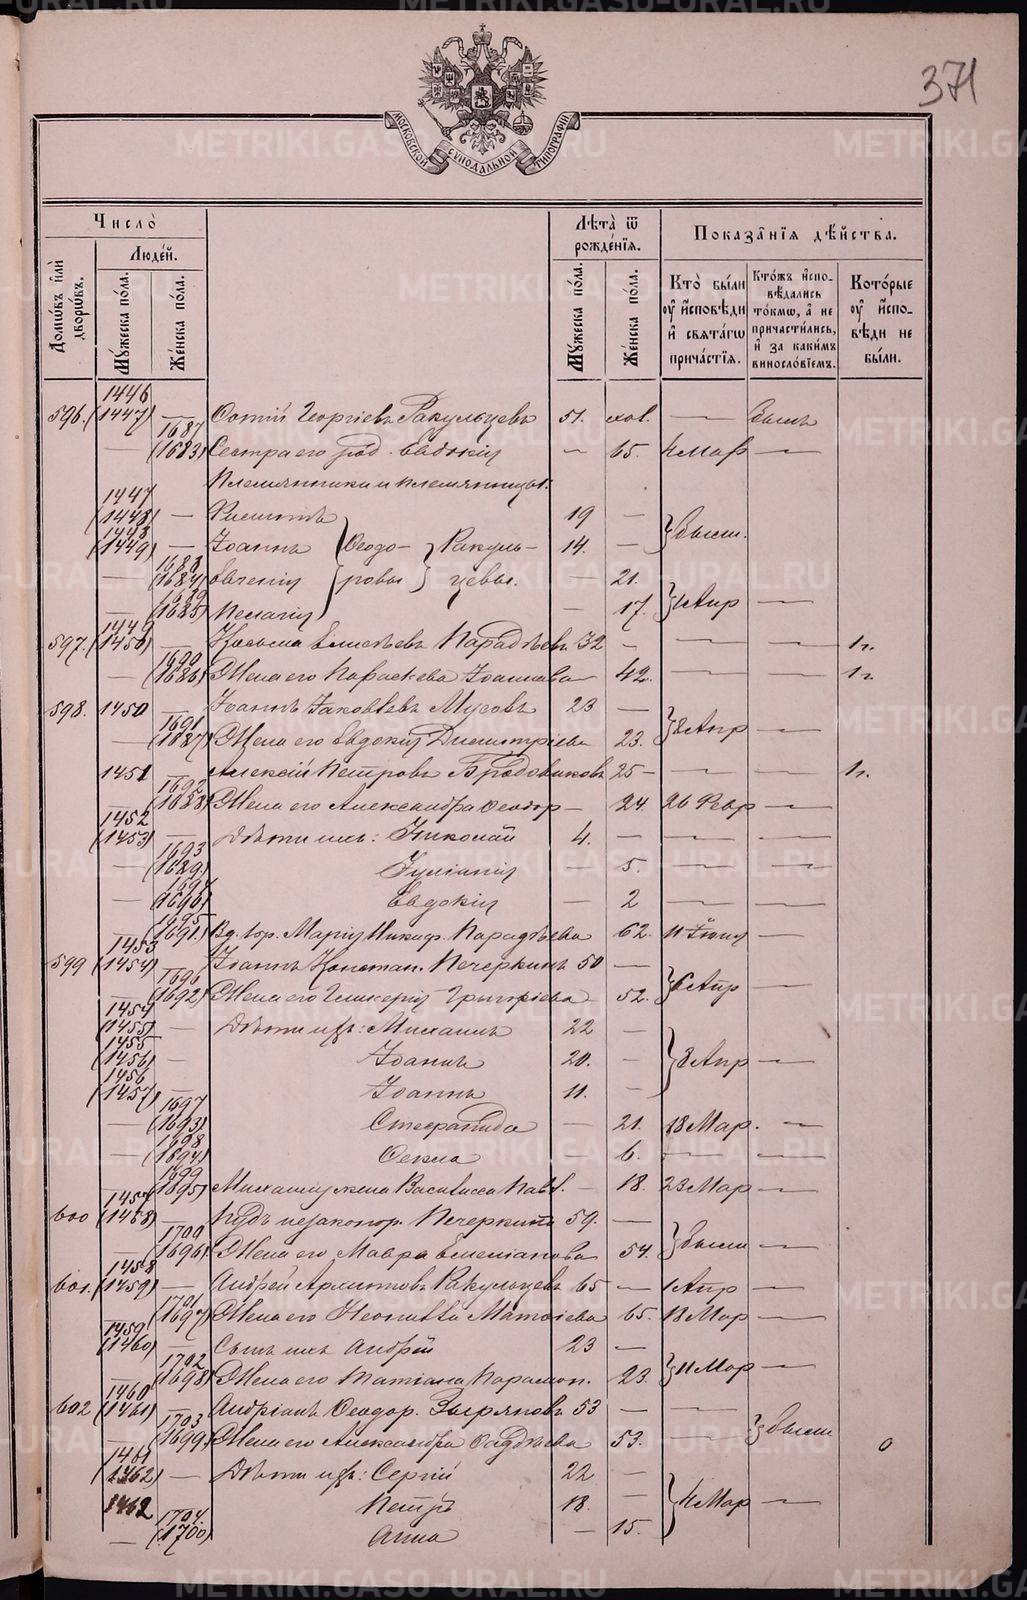 371
МОСКОВСКОЙ СѴНОДАЛЬНОЙ ТИПОГРАФІИ
Число̀
Людéй.
Домѡ́въ и҆лѝ дворѡ́въ.
Мꙋ́жеска по́ла.
Же́нска по́ла.
Лѣ́та ѿ рожде́нїѧ.
Мꙋ́жеска по́ла.
Же́нска по́ла.
Показа̑нїѧ дѣ́йства.
Кто̀ бы́ли оу҆ и҆́сповѣди и҆ свѧта́гѡ прича́стїѧ.
Кто́жъ и҆спо- вѣ́дались то́кмѡ, а҆ не причасти́лись, и҆ за каки́мъ винослові́емъ.
Кото́рые оу҆ и҆́спо- вѣди не бы́ли.
1446
596. (1447) — Фотій Георгіевъ Ракульцевъ 51. хол. — бытъ
1687
— (1683) Сестра его род. Евдокія — 65. 4 Мар —
Племянники и племянницы:
1447
(1448) — Филиппъ 19 —
1448
(1449) — Іоаннъ Ѳеодо- Ракуль- 14. —
1688
— (1684) Евгенія ровы цевы. — 21.
1689
— (1685) Пелагія — 17. 1 Апр —
1449
597. (1450) — Косьма Елисѣевъ Парадѣевъ 32 — — — 1 г.
1690
— (1686) Жена его Параскева Іоаннова — 42. — — 1 г.
598. 1450 — Іоаннъ Іаковлевъ Мусовъ 23 —
1691
— (1687) Жена его Евдокія Димитріева 23. 8 Апр —
1451 — Алексій Петровъ Бродовиковъ 25 — — — 1 г.
1692
(1688) Жена его Александра Ѳеодор — 24. 26 Февр —
1452
(1453) — Дѣти ихъ: Николай 4. — — —
1693
— (1689) Іуліанія — 5. — —
1694
— (1690) Евдокія — 2 — —
1695
— (1691) Вд. Марія Никиф. Парадѣева 62. 11 Іюня —
1453
599 (1454) — Іоаннъ Констан. Печеркинъ 50 —
1696
— (1692) Жена его Гликерія Григоріева 52. 6 Апр —
1454
(1455) — Дѣти ихъ: Михаилъ 22 —
1455
(1456) — Іоаннъ 20. — 8 Апр —
1456
(1457) — Іоаннъ 11. —
1697
— (1693) Стефанида — 21. 18 Мар. —
1698
— (1694) Ѳекла — 6. — —
1699
— (1695) Михаила жена Василисса Павл. — 18. 23 Мар —
1457
600 (1458) — незаконор. Печеркинъ 59. —
1700
— (1696) Жена его Мавра Емеліанова 54. —
1458
601. (1459) — Андрей Ракульцевъ 65 — 1 Апр —
1701
— (1697) Жена его Неонилла Матѳіева 65. 18 Мар —
1459
(1460) — Сынъ ихъ Андрей 23 —
1702
— (1698) Жена его Татіана Парамон. 23. 11 Мар —
1460
602 (1461) — Андріанъ Ѳеодор. Зыряновъ 53 — —
1703
— (1699) Жена его Александра Ѳаддѣева 53. — 0
1461
(1462) — Дѣти ихъ: Сергій 22 —
1462 Петръ 18. — 4 Мар —
1704.
— (1700) Анна — 15.
METRIKI.GASO-URAL.RU